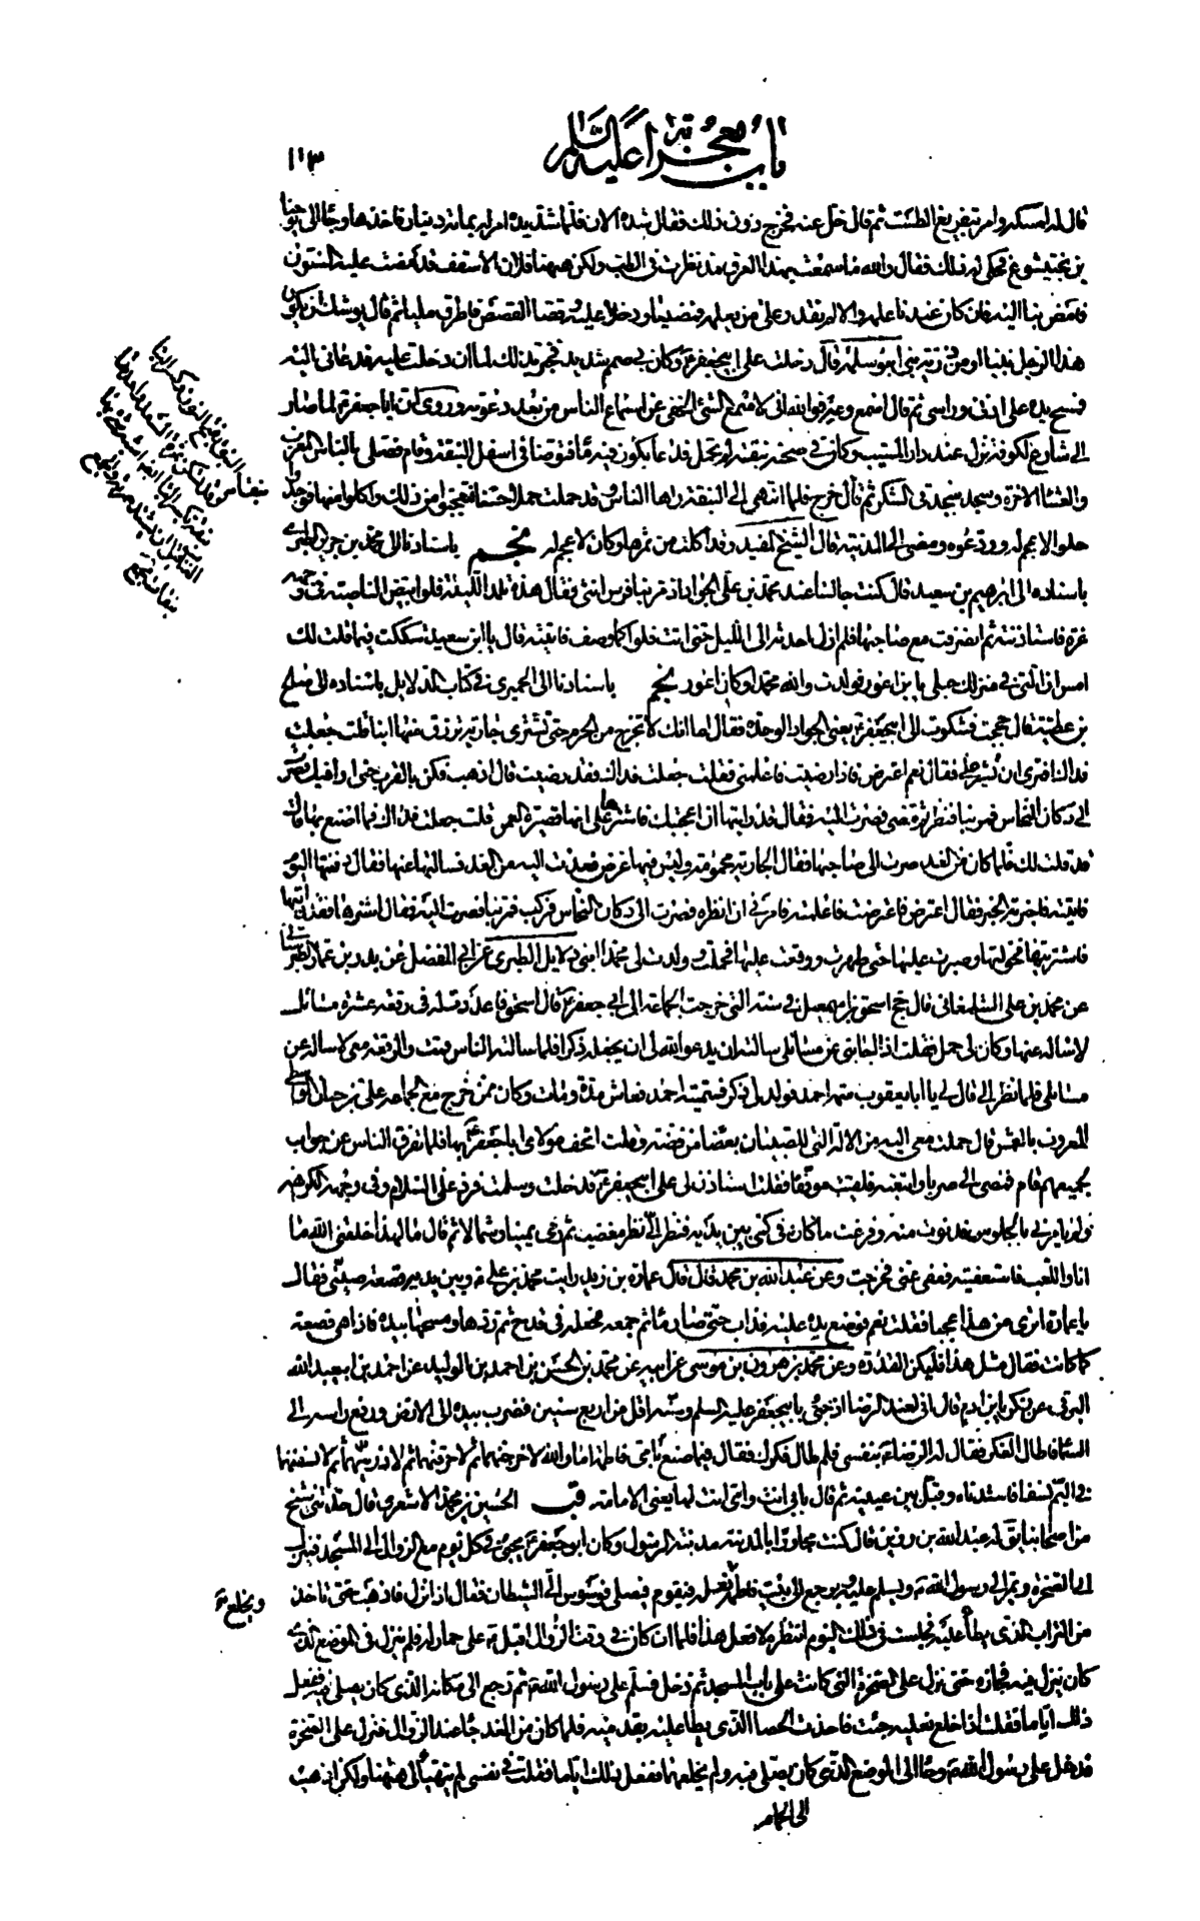 باب معجزاته عليه السلام
١١٣
قال له امسك وامر بتفريغ الطست ثم قال خل عنه فخرج دون ذلك فقال شده الان فلما شد يده امر له بمائة دينار فاخذها وجاء الى يوحنا
بن بختيشوع فحكى له ذلك فقال والله ما سمعت بهذا العرق مذ نظرت في الطب ولكن ههنا فلان الاسقف قد مضت عليه السنون
فامض بنا اليه فان كان عنده علمه والا لم نقدر على من يعلمه فمضينا ودخلا عليه وقصا القصص فاطرق مليا ثم قال يوشك ان يكون
هذا الرجل نبيا او من ذرية نبي ابو سلمة قال دخلت على ابي جعفر ع وكان بي صمم شديد فخبر بذلك لما ان دخلت عليه فدعاني اليه
فمسح يده على اذني وراسي ثم قال اسمع وعه فوالله اني لاسمع الشئ الخفي عن اسماع الناس من بعد دعوته وروي ان ابا جعفر ع لما صار
الى شارع الكوفة نزل عند دار المسيب وكان في صحنه نبقة لم تحمل فدعا بكوز فيه ماء فتوضا في اسفل النبقة وقام فصلى بالناس المغرب
والعشاء الاخرة وسجد سجدتي الشكر ثم قال خرج فلما انتهى الى النبقة راها الناس وقد حملت حملا حسنا فتعجبوا من ذلك واكلوا منها فوجدوا
حلوا لا عجم له وودعوه ومضى الى المدينة قال الشيخ المفيد وقد اكلت من ثمرها وكان لا عجم له نجم باسنادنا الى محمد بن جرير الطبري
باسناده الى ابرهيم بن سعيد قال كنت جالسا عند محمد بن علي الجواد اذ مر بنا فرس انثى فقال هذه تلد الليلة فلوا ابيض الناصية في وجهه
غرة فاستاذنته ثم انصرفت مع صاحبها فلم ازل احدثه الى الليل حتى اتت فلوا كما وصف فاتيته قال يا ابن سعيد شككت فيما قلت لك
امس ان التي في منزلك حبلى بابن اعور فولدت والله محمدا وكان اعور نجم باسنادنا الى الحميري في كتاب الدلايل باسناده الى صالح
بن عطية قال حججت فشكوت الى ابي جعفر ع يعني الجواد الوحدة فقال اما انك لا تخرج من الحرم حتى تشتري جارية ترزق منها ابنا قلت جعلت
فداك افترى ان تشير علي فقال نعم اعترض فاذا رضيت فاعلمني فقلت جعلت فداك فقد رضيت قال اذهب فكن بالقرب حتى اوافيك فصرت
الى دكان النخاس فمر بنا فنظر ثم مضى فصرت اليه فقال قد رايتها ان اعجبتك فاشترها على انها قصيرة العمر قلت جعلت فداك فما اصنع بها قال
قد قلت لك فلما كان من الغد صرت الى صاحبها فقال الجارية محمومة وليس فيها غرض فعدت اليه من الغد فسالته عنها فقال دفنتها اليوم
فاتيته فاخبرته الخبر فقال اعترض فاعترضت فاعلمته فامرني ان انظره فصرت الى دكان النخاس فركب فمر بنا فصرت اليه فقال اشترها فقد رايتها
فاشتريتها فحولتها وصبرت عليها حتى طهرت ووقعت عليها فحملت وولدت لي محمدا ابني دلايل الطبري عن ابي المفضل عن بدر بن عمار الطبرستاني
عن محمد بن علي الشلمغاني قال حج اسحق بن اسمعيل في سنة التي خرجت الجماعة الى ابي جعفر ع قال اسحق فاعددت له في رقعة عشرة مسائل
لاساله عنها وكان لي حمل فقلت اذا اجابني عن مسائلي سالته ان يدعو الله لي ان يجعله ذكرا فلما ساله الناس قمت والرقعة معي لاساله عن
مسائلي فلما نظر الي قال لي يا ابا يعقوب سمه احمد فولد لي ذكر فسميته احمد فعاش مدة ومات وكان ممن خرج مع الجماعة علي بن حسان الواسطي
المعروف بالعمش قال حملت معي اليه من الالة التي للصبيان بعضا من فضة وقلت اتحف مولاي ابا جعفر ع بها فلما تفرق الناس عن جواب
لجميعهم قام فمضى الى صريا واتبعته فلقيت موفقا فقلت استاذن لي على ابي جعفر ع فدخلت وسلمت فرد علي السلام وفي وجهه الكراهة
ولم يامرني بالجلوس فدنوت منه وفرغت ما كان في كمي بين يديه فنظر الي نظر مغضب ثم رمى يمينا وشمالا ثم قال ما لهذا خلقني الله ما
انا واللعب فاستعفيته فعفى عني فخرجت وعن عبد الله بن محمد قال قال عمارة بن زيد رايت محمد بن علي ع وبين يديه قصعة صيني فقال
يا عمارة اترى من هذا عجبا فقلت نعم فوضع يده عليه فذاب حتى صار ماء ثم جمعه فجعله في قدح ثم ردها ومسحها بيده فاذا هي قصعة
كما كانت فقال مثل هذا فليكن القدرة وعن محمد بن هرون بن موسى عن ابيه عن محمد بن الحسن بن احمد بن الوليد عن احمد بن ابي عبد الله
البرقي عن زكريا بن ادم قال اني لعند الرضا اذ جئ بابي جعفر عليه السلم وسنه اقل من اربع سنين فضرب بيده الى الارض ورفع راسه الى
السماء فاطال الفكر فقال له الرضا ع بنفسي فلم طال فكرك فقال فيما صنع بامي فاطمة اما والله لاخرجنهما ثم لاحرقنهما ثم لاذرينهما ثم لانسفنهما
في اليم نسفا فاستدناه وقبل بين عينيه ثم قال بابي انت وامي انت لها يعني الامامة قب الحسين بن محمد الاشعري قال حدثني شيخ
من اصحابنا يق له عبد الله بن رزين قال كنت مجاورا بالمدينة مدينة الرسول وكان ابو جعفر ع يجئ في كل يوم مع الزوال الى المسجد فينزل
الى الصخرة ويمر الى رسول الله ص ويسلم عليه ويرجع الى بيت فاطمة ع فيقوم فيصلي فوسوس الي الشيطان فقال اذا نزل فاذهب حتى تاخذ
من التراب الذي يطأ عليه فجلست في ذلك اليوم انتظره لافعل هذا فلما ان كان في وقت الزوال اقبل ع على حمار له فلم ينزل في الموضع الذي
كان ينزل فيه فجازه حتى نزل على الصخرة التي كانت على باب المسجد ثم دخل فسلم على رسول الله ص ثم رجع الى مكانه الذي كان يصلي فيه ففعل
ذلك اياما فقلت اذا خلع نعليه جئت فاخذت الحصا الذي يطأ عليه بقدميه فلما كان من الغد جاء عند الزوال فنزل على الصخرة
فدخل على رسول الله ص وجاء الى الموضع الذي كان يصلي فيه ولم يخلعهما ففعل ذلك اياما فقلت في نفسي لم يتهيأ لي ههنا ولكن اذهب
الى الحمام
ويخلع